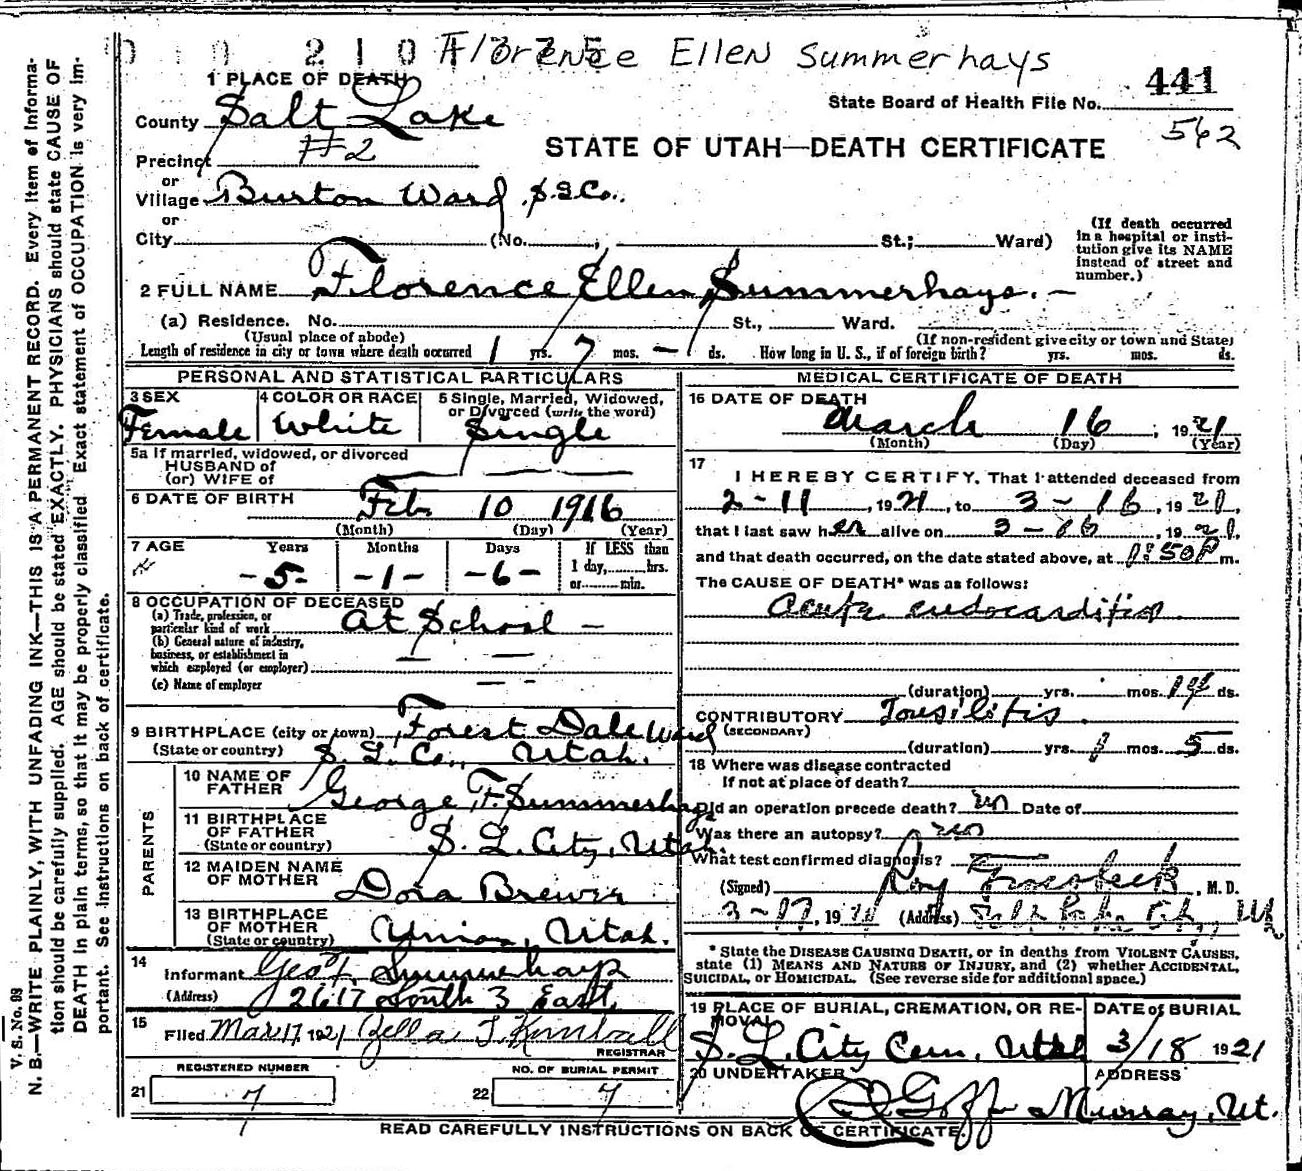 Florence Ellen Summerhays
1 PLACE OF DEATH
441
State Board of Health File No.
562
County Salt Lake
Precinct #2
STATE OF UTAH—DEATH CERTIFICATE
or
Village Burton Ward, S.L.Co.
or
City (No. , St.; Ward)
(If death occurred in a hospital or institution give its NAME instead of street and number.)
2 FULL NAME Florence Ellen Summerhays.
(a) Residence. No. St., Ward.
(Usual place of abode) (If non-resident give city or town and State)
Length of residence in city or town where death occurred 1 yrs. 7 mos. — ds. How long in U. S., if of foreign birth? yrs. mos. ds.
PERSONAL AND STATISTICAL PARTICULARS
3 SEX Female
4 COLOR OR RACE White
5 Single, Married, Widowed, or Divorced (write the word) Single
5a If married, widowed, or divorced
HUSBAND of
(or) WIFE of
6 DATE OF BIRTH Feb 10 1916
(Month) (Day) (Year)
7 AGE Years Months Days If LESS than
-5- -1- -6- 1 day, hrs.
or min.
8 OCCUPATION OF DECEASED
(a) Trade, profession, or
particular kind of work At School —
(b) General nature of industry,
business, or establishment in
which employed (or employer)
(c) Name of employer
9 BIRTHPLACE (city or town) Forest Dale Ward
(State or country) S. L. Co., Utah.
PARENTS
10 NAME OF FATHER George F. Summerhays
11 BIRTHPLACE OF FATHER
(State or country) S. L. City, Utah.
12 MAIDEN NAME OF MOTHER Dora Brewer
13 BIRTHPLACE OF MOTHER
(State or country) Union, Utah.
14
Informant Geo F. Summerhays
(Address) 2617 South 3 East
15
Filed Mar 17, 1921 Zella T. Kimball
REGISTRAR
REGISTERED NUMBER
21 7
NO. OF BURIAL PERMIT
22 7
MEDICAL CERTIFICATE OF DEATH
16 DATE OF DEATH
March 16, 1921
(Month) (Day) (Year)
17
I HEREBY CERTIFY, That I attended deceased from
2-11, 1921, to 3-16, 1921,
that I last saw her alive on 3-16, 1921,
and that death occurred, on the date stated above, at 1:50 P m.
The CAUSE OF DEATH* was as follows:
Acute endocarditis
(duration) yrs. mos. ds.
CONTRIBUTORY Tonsilitis.
(SECONDARY)
(duration) yrs. 1 mos. 5 ds.
18 Where was disease contracted
If not at place of death?
Did an operation precede death? no Date of
Was there an autopsy? no
What test confirmed diagnosis?
(Signed) Roy, M. D.
3-17, 1921 (Address) Salt Lake City, Ut
* State the DISEASE CAUSING DEATH, or in deaths from VIOLENT CAUSES,
state (1) MEANS AND NATURE OF INJURY, and (2) whether ACCIDENTAL,
SUICIDAL, or HOMICIDAL. (See reverse side for additional space.)
19 PLACE OF BURIAL, CREMATION, OR REMOVAL
S. L. City Cem, Utah
DATE of BURIAL
3/18 1921
20 UNDERTAKER Goff
ADDRESS
Murray, Ut.
READ CAREFULLY INSTRUCTIONS ON BACK OF CERTIFICATE.
V. S. No. 98
N. B.—WRITE PLAINLY, WITH UNFADING INK—THIS IS A PERMANENT RECORD. Every item of information should be carefully supplied. AGE should be stated EXACTLY. PHYSICIANS should state CAUSE OF
DEATH in plain terms, so that it may be properly classified. Exact statement of OCCUPATION is very important. See instructions on back of certificate.